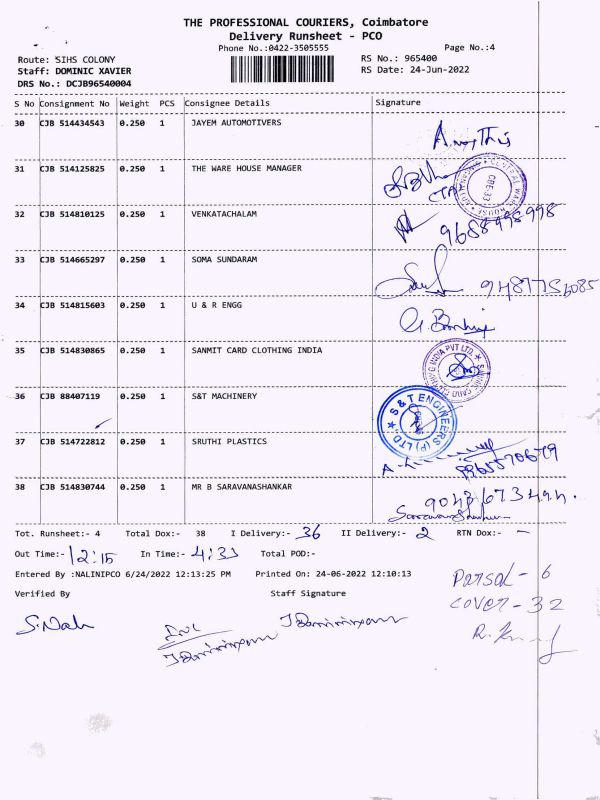 THE PROFESSIONAL COURIERS, Coimbatore
Delivery Runsheet - PCO
Phone No.:0422-3505555
Page No.:4
Route: SIHS COLONY
RS No.: 965400
Staff: DOMINIC XAVIER
RS Date: 24-Jun-2022
DRS No.: DCJB96540004
S No Consignment No Weight PCS Consignee Details Signature
30 CJB 514434543 0.250 1 JAYEM AUTOMOTIVERS
31 CJB 514125825 0.250 1 THE WARE HOUSE MANAGER
32 CJB 514810125 0.250 1 VENKATACHALAM 9688998998
33 CJB 514665297 0.250 1 SOMA SUNDARAM
34 CJB 514815603 0.250 1 U & R ENGG
35 CJB 514830865 0.250 1 SANMIT CARD CLOTHING INDIA
36 CJB 88407119 0.250 1 S&T MACHINERY
S & T ENGINEERS (P) LTD.
37 CJB 514722812 0.250 1 SRUTHI PLASTICS
38 CJB 514830744 0.250 1 MR B SARAVANASHANKAR
Tot. Runsheet:- 4 Total Dox:- 38 I Delivery:- 36 II Delivery:- 2 RTN Dox:- -
Out Time:- 12:15 In Time:- 4:33 Total POD:-
Entered By :NALINIPCO 6/24/2022 12:13:25 PM Printed On: 24-06-2022 12:10:13
Verified By Staff Signature
Parsal - 6
cover - 32